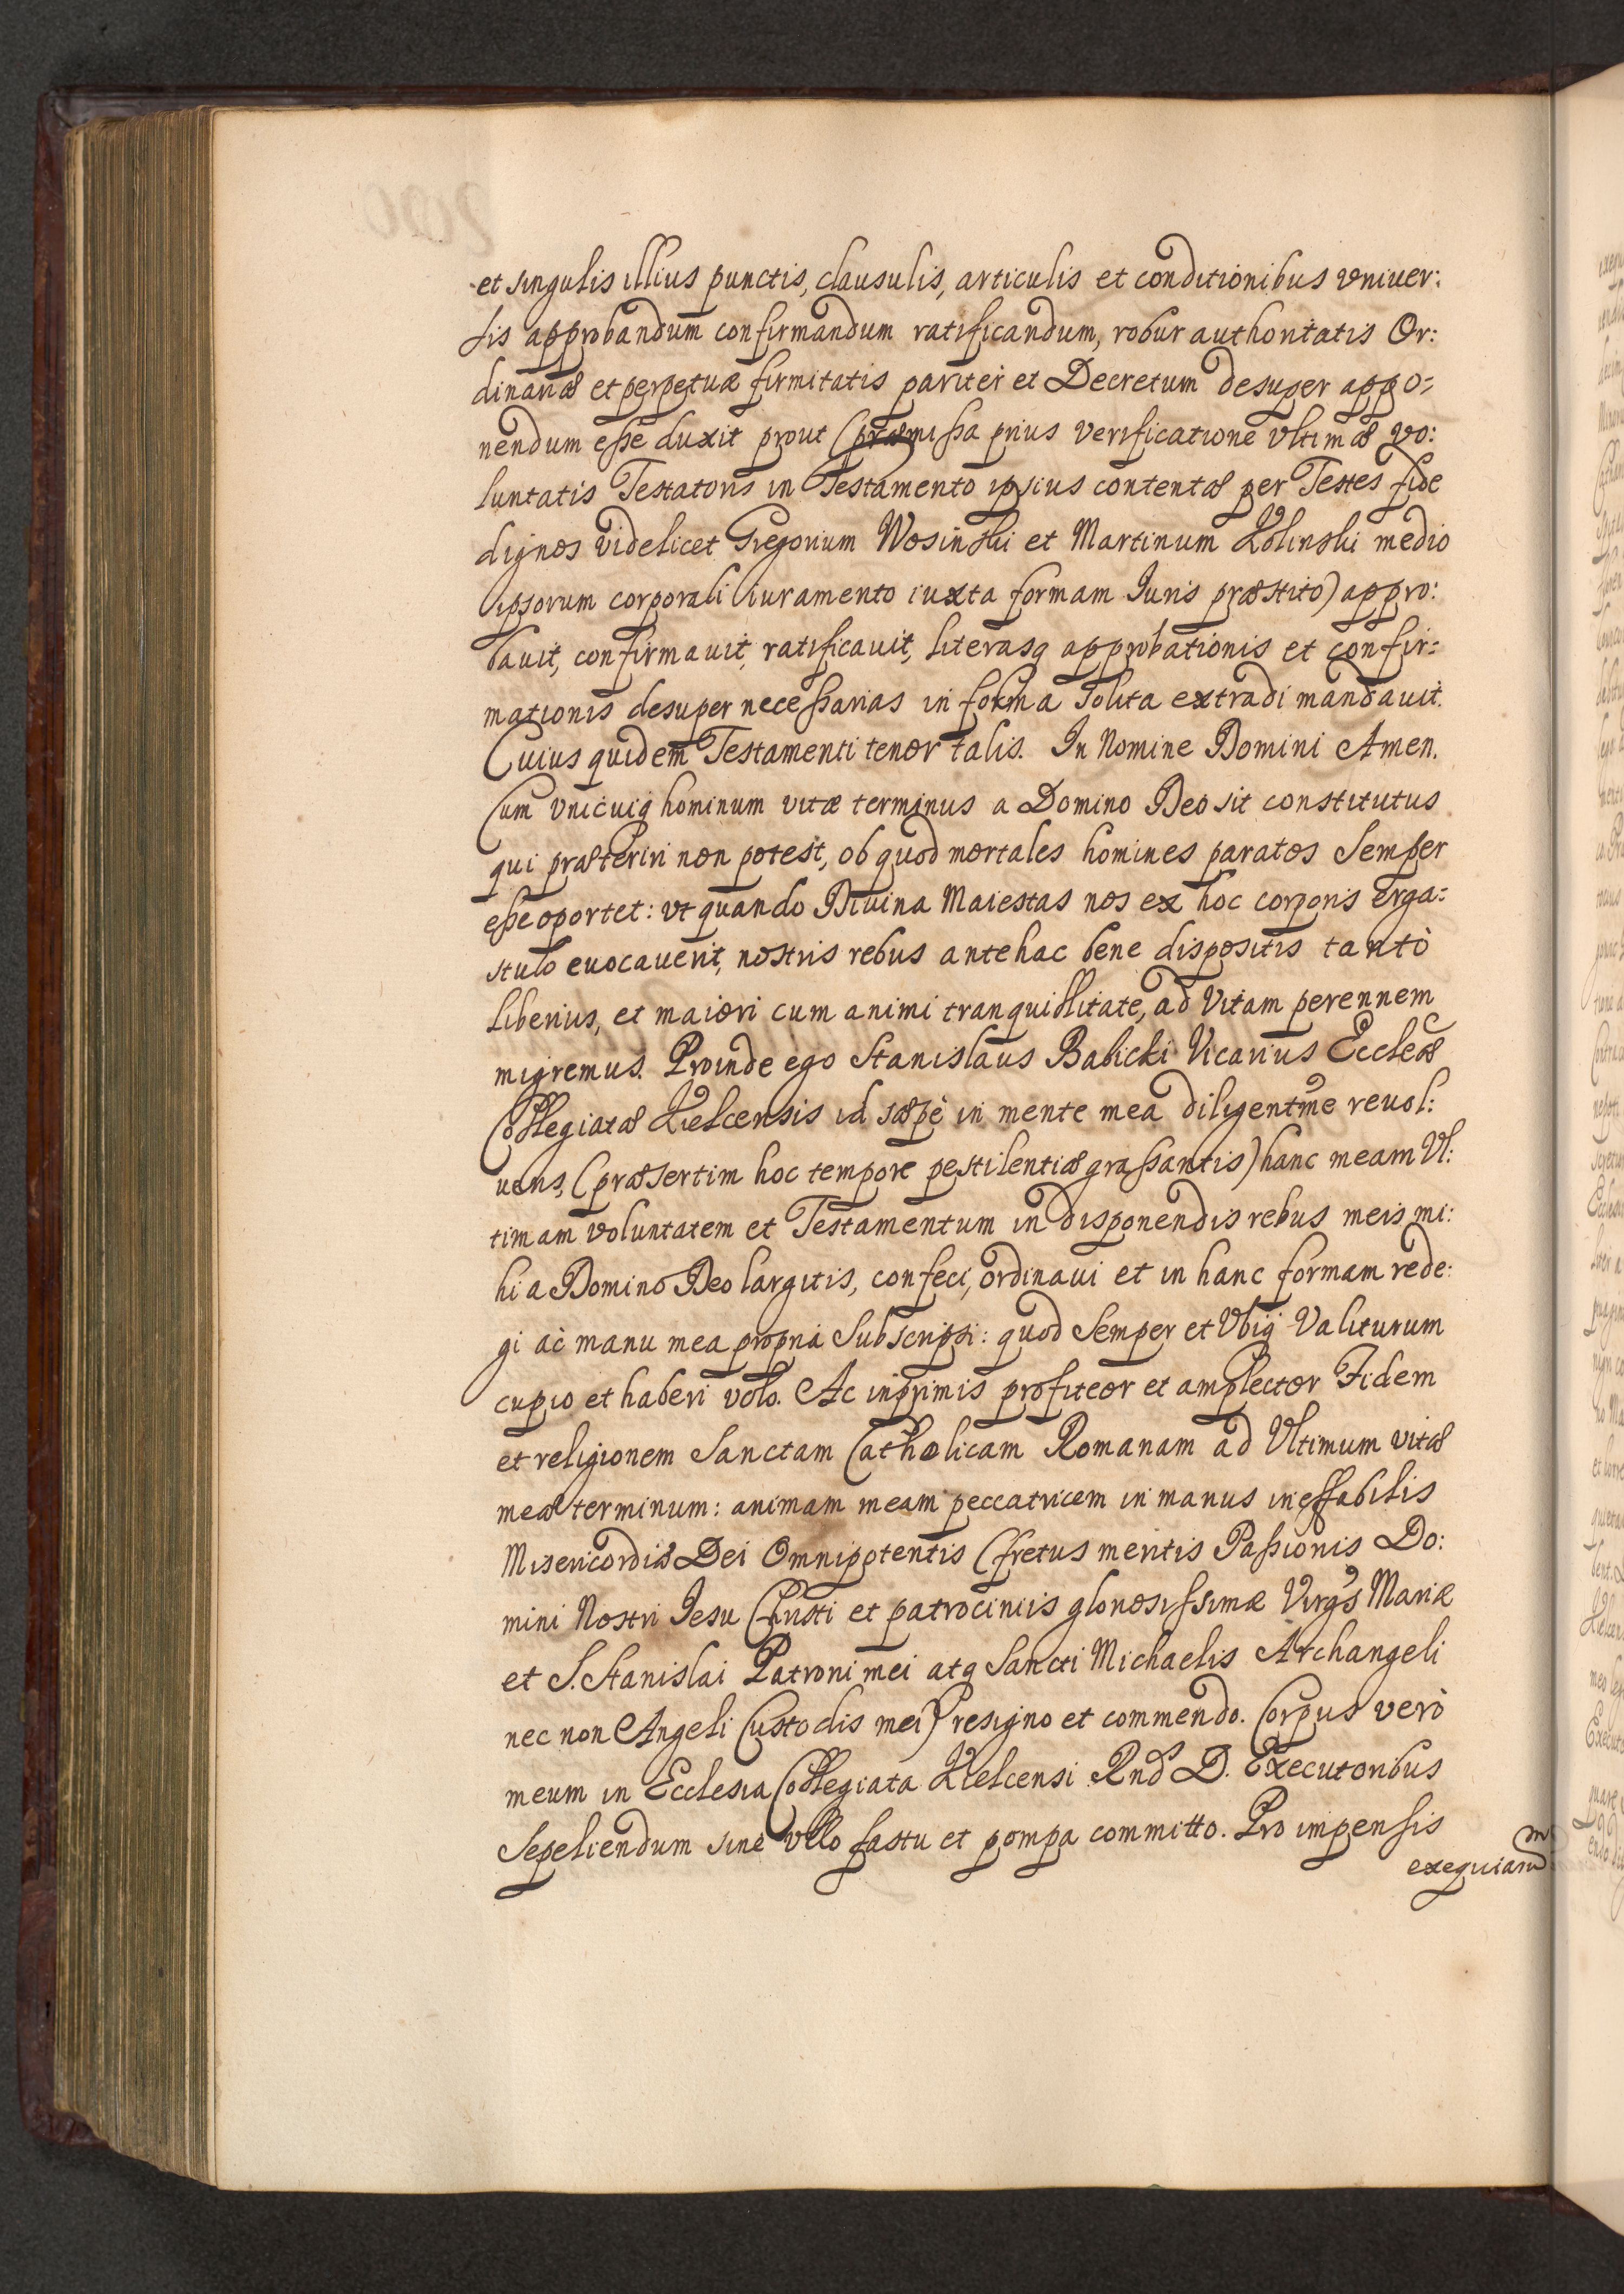 et singulis illius punctis, clausulis, articulis et conditionibus vniuer:
sis approbandum confirmandum ratificandum, robur authoritatis Or:
dinariæ et perpetuæ firmitatis pariter et Decretum desuper appo:
nendum esse duxit prout (præmissa prius verificatione vltimæ vo:
luntatis Testatoris in Testamento ipsius contentæ per Testes fide
dignos videlicet Gregorium Wosinski et Martinum Kolinski medio
ipsorum corporali iuramento iuxta formam Iuris præstito) appro:
bauit, confirmauit, ratificauit, literasq approbationis et confir:
mationis desuper necessarias in forma solita extradi mandauit.
Cuius quidem Testamenti tenor talis. In Nomine Domini Amen.
Cum vnicuiq hominum vitæ terminus a Domino Deo sit constitutus
qui præteriri non potest, ob quod mortales homines paratos semper
esse oportet: vt quando Diuina Maiestas nos ex hoc corporis erga:
stulo euocauerit, nostris rebus antehac bene dispositis tantò
liberius, et maiori cum animi tranquillitate, ad vitam perennem
migremus. Proinde ego Stanislaus Babicki Vicarius Eccleæ
Collegiatæ Kielcensis id sæpè in mente mea diligentme reuol:
uens, (præsertim hoc tempore pestilentiæ grassantis) hanc meam Vl:
timam voluntatem et Testamentum in disponendis rebus meis mi:
hi a Domino Deo largitis, confeci, ordinaui et in hanc formam rede:
gi ac manu mea propria subscripsi: quod semper et Vbiq Valiturum
cupio et haberi volo. Ac inprimis profiteor et amplector Fidem
et religionem Sanctam Catholicam Romanam ad Vltimum vitæ
meæ terminum: animam meam peccatricem in manus ineffabilis
Misericordiæ Dei Omnipotentis (fretus meritis Passionis Do:
mini Nostri Iesu Christi et patrociniis gloriosissimæ Virgs Mariæ
et S. Stanislai Patroni mei atq Sancti Michaelis Archangeli
nec non Angeli Custodis mei) resigno et commendo. Corpus verò
meum in Ecclesia Collegiata Kielcensi Rnd D. Executoribus
sepeliendum sine vllo fastu et pompa committo. Pro impensis
exequiarum